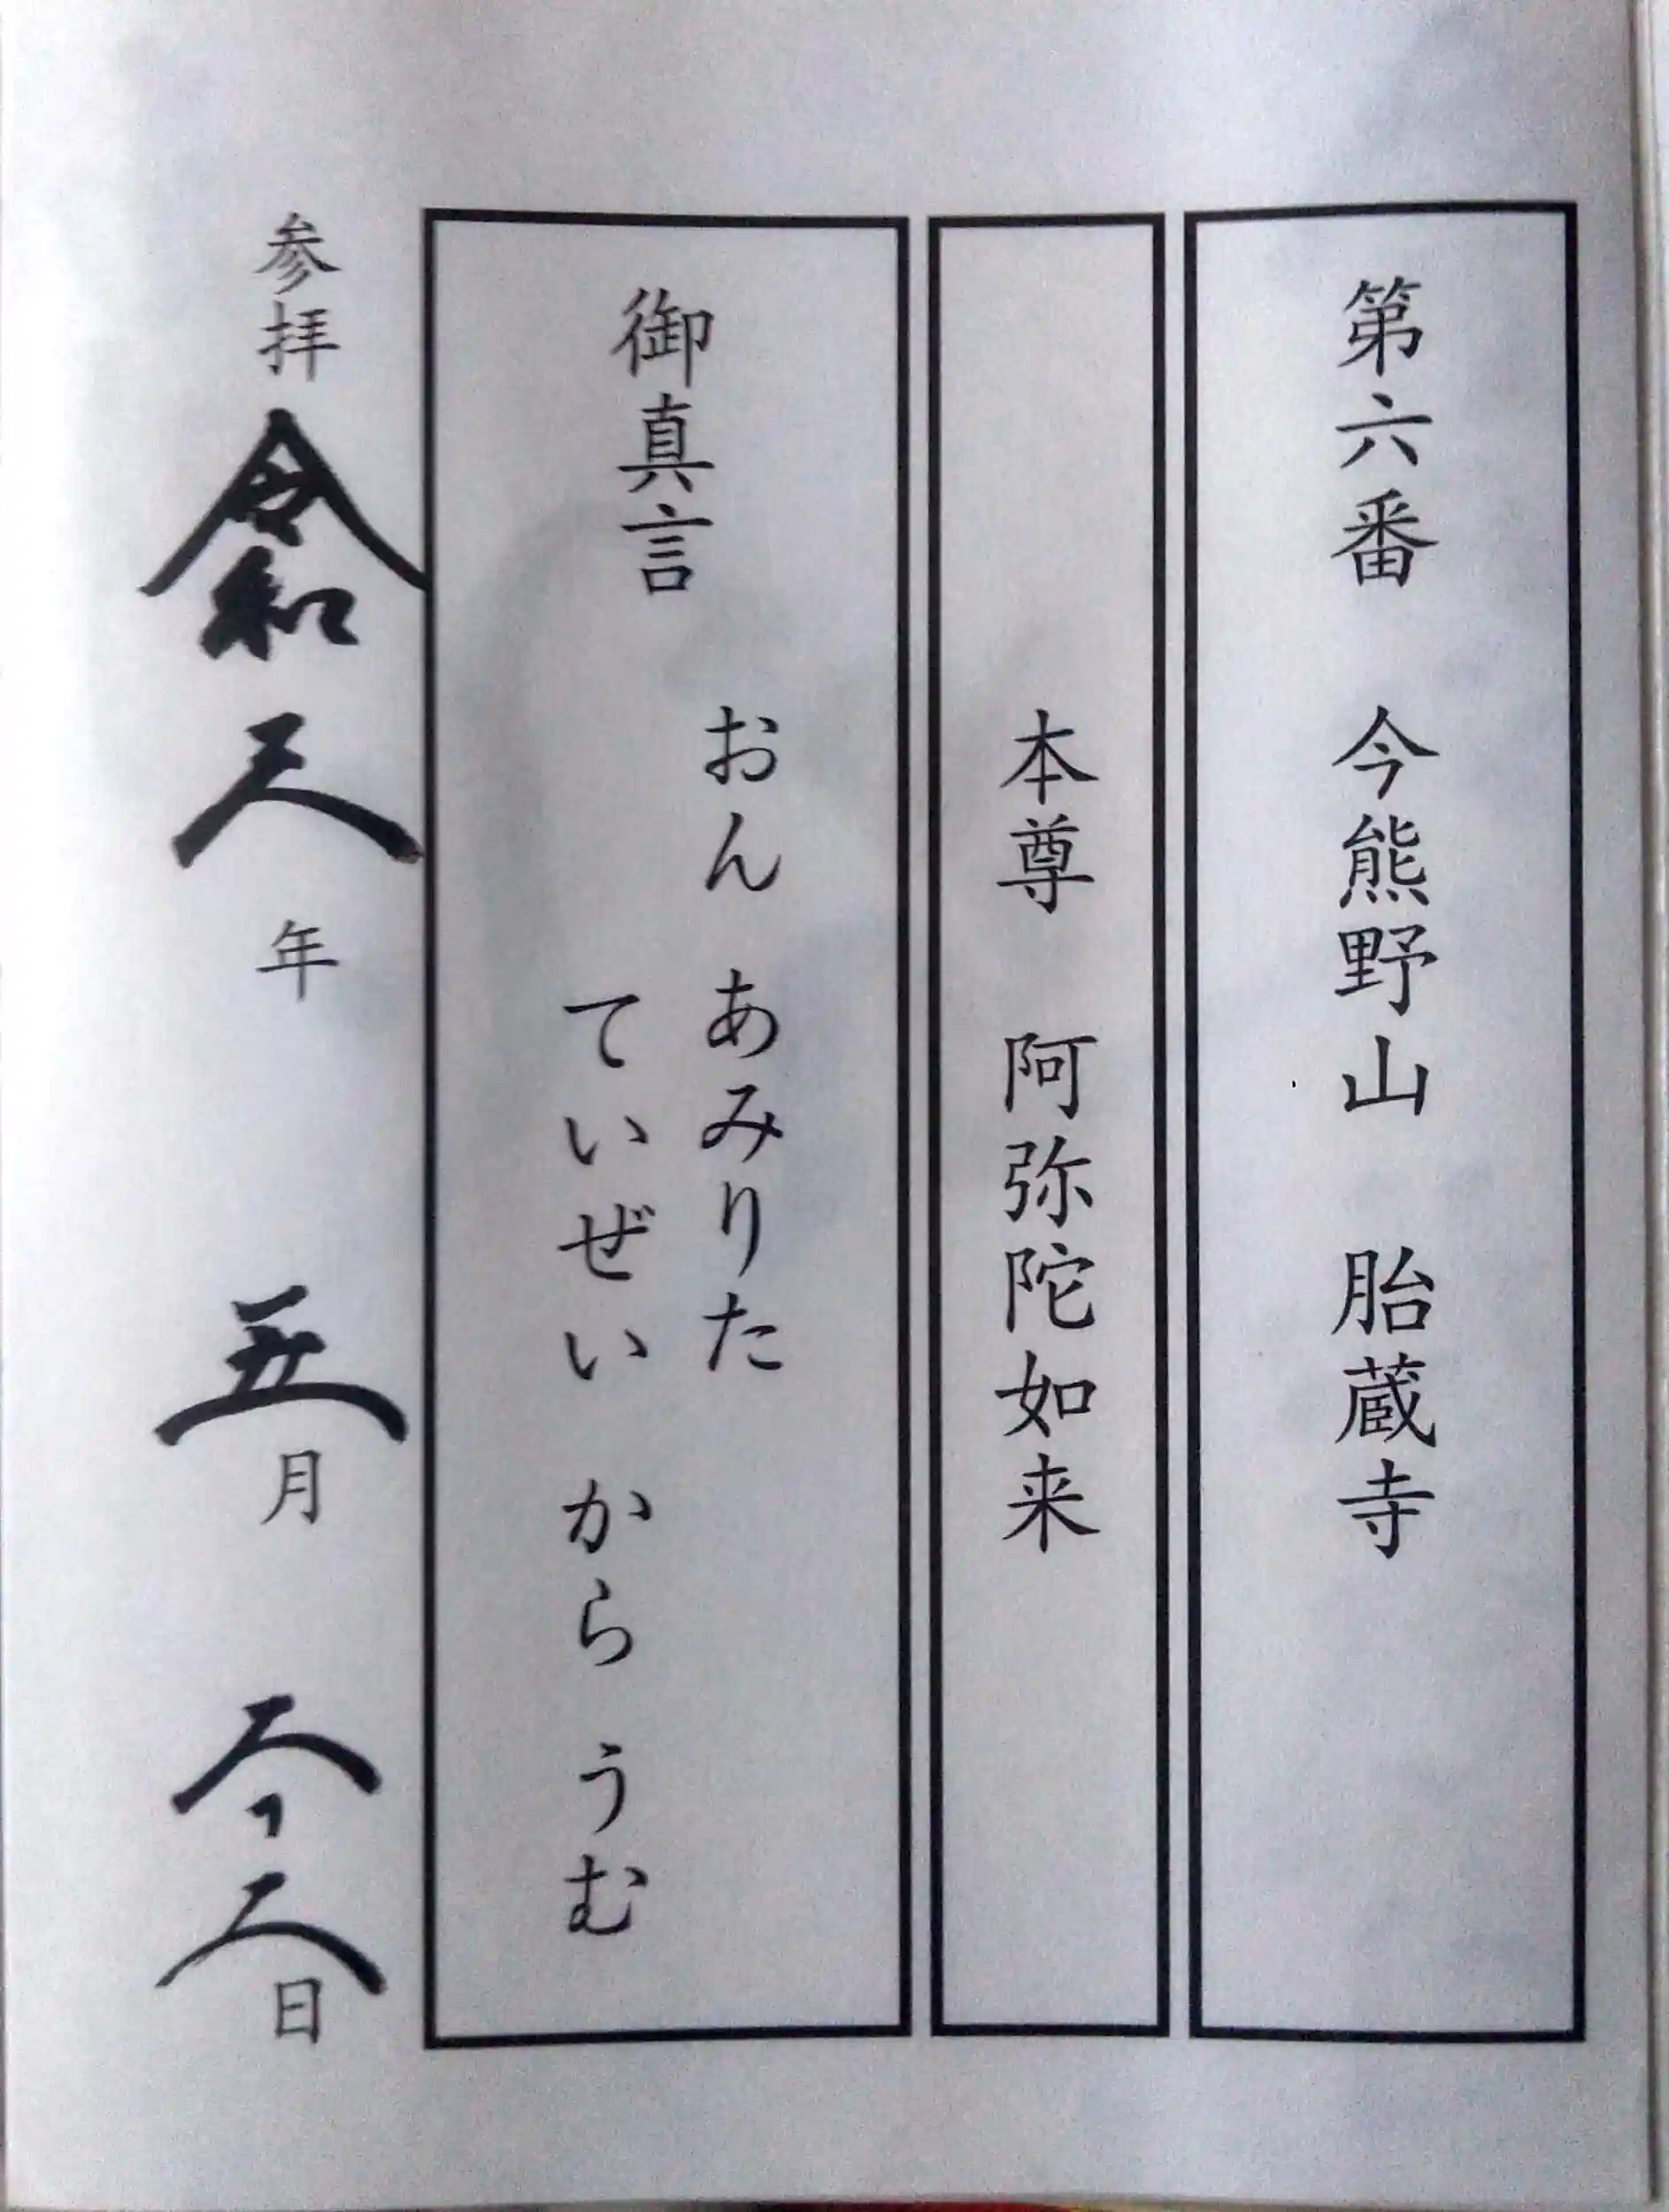 第六番 今熊野山 胎蔵寺
本尊 阿弥陀如来
御真言
おん あみりた
ていぜい から うむ
参拝 令和三年 五月 日